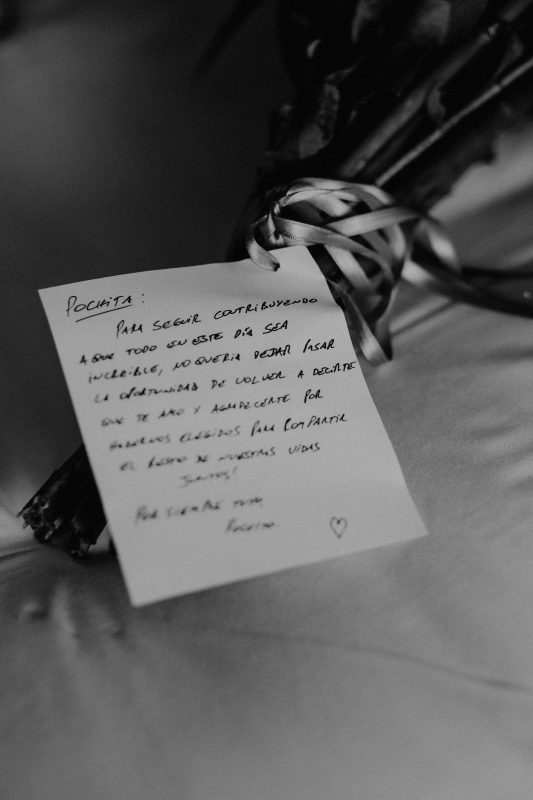 POCHITA:
PARA SEGUIR CONTRIBUYENDO
A QUE TODO EN ESTE DÍA SEA
INCREIBLE, NO QUERIA DEJAR PASAR
LA OPORTUNIDAD DE VOLVER A DECIRTE
QUE TE AMO Y AGRADECERTE POR
HABERNOS ELEGIDOS PARA COMPARTIR
EL RESTO DE NUESTRAS VIDAS
JUNTOS!
POR SIEMPRE TUYA,